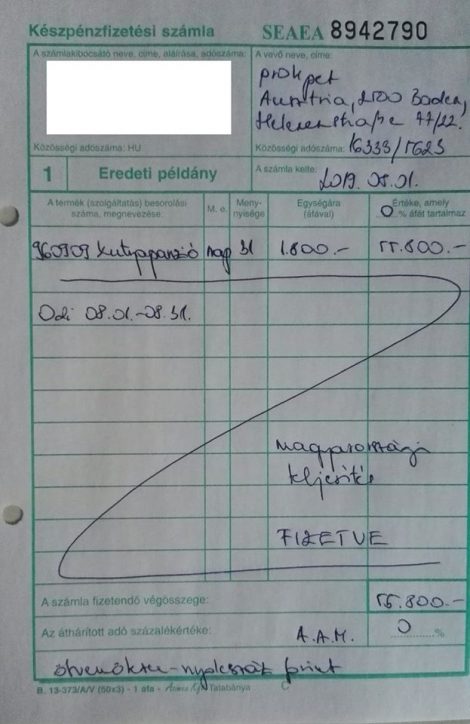 Készpénzfizetési számla SEAEA 8942790
A számlakibocsátó neve, címe, aláírása, adószáma:
A vevő neve, címe:
prokpet
Austria, 2500 Baden,
Helenenstraße 47/22.
Közösségi adószáma: HU
Közösségi adószáma: 16333/5623
1 Eredeti példány
A számla kelte: 2019.08.01.
A termék (szolgáltatás) besorolási száma, megnevezése. M. e. Meny-nyisége Egységára (áfával) Értéke, amely 0 % áfát tartalmaz
960909 Kutyapanzió nap 31 1.800.- 55.800.-
Odi 08.01.-08.31.
Magyarországi
teljesítés
FIZETVE
A számla fizetendő végösszege: 55.800.-
Az áthárított adó százalékértéke: A.A.M. 0 %
ötvenötezer-nyolcszáz forint
B. 13-373/A/V (50x3) - 1 áfa - Tatabánya